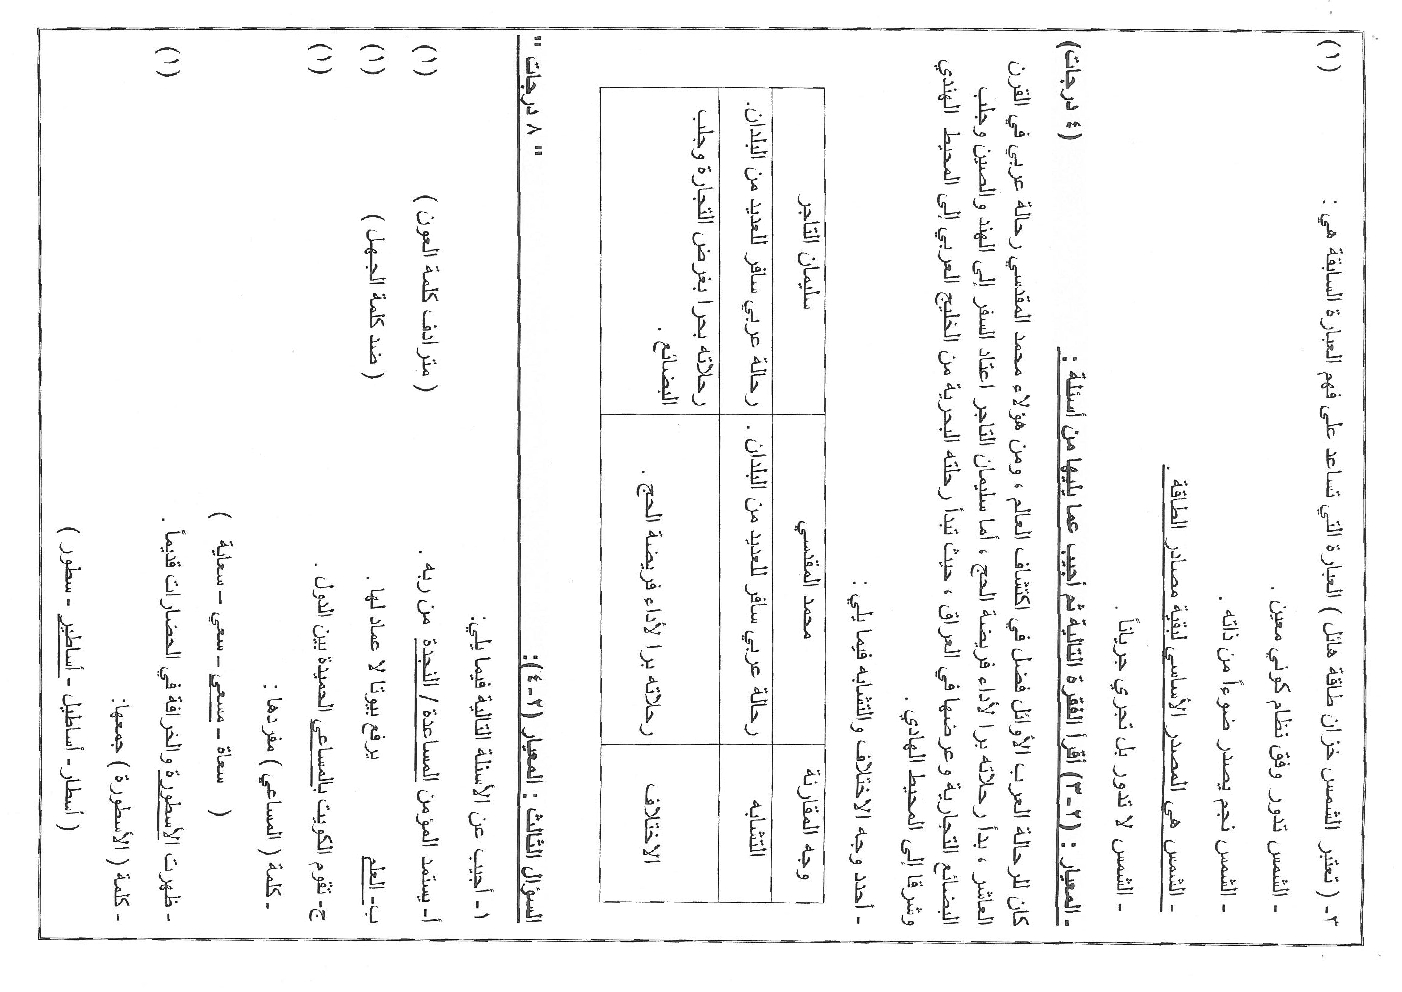 ٣- ( تعتبر الشمس خزان طاقة هائل ) العبارة التي تساعد على فهم العبارة السابقة هي : (١)
- الشمس تدور وفق نظام كوني معين .
- الشمس نجم يصدر ضوءاً من ذاته .
- الشمس هي المصدر الأساسي لبقية مصادر الطاقة .
- الشمس لا تدور بل تجري جرياناً .
- المعيار : (٢-٣) أقرأ الفقرة التالية ثم أجيب عما يليها من أسئلة : (٤ درجات)
كان للرحالة العرب الأوائل فضل في اكتشاف العالم ، ومن هؤلاء محمد المقدسي رحالة عربي في القرن
العاشر ، بدأ رحلاته برا لأداء فريضة الحج ، أما سليمان التاجر اعتاد السفر إلى الهند والصين وجلب
البضائع التجارية وعرضها في العراق ، حيث تبدأ رحلته البحرية من الخليج العربي إلى المحيط الهندي
وشرقا إلى المحيط الهادي .
- أحدد وجه الاختلاف والتشابه فيما يلي :
وجه المقارنة محمد المقدسي سليمان التاجر
التشابه رحالة عربي سافر للعديد من البلدان . رحالة عربي سافر للعديد من البلدان.
الاختلاف رحلاته برا لأداء فريضة الحج . رحلاته بحرا بغرض التجارة وجلب
البضائع .
السؤال الثالث : المعيار (٢-٤): " ٨ درجات "
١- أجيب عن الأسئلة التالية فيما يلي:
أ- يستمد المؤمن المساعدة / النجدة من ربه . ( مترادف كلمة العون ) (١)
ب- العلم يرفع بيوتا لا عماد لها . ( ضد كلمة الجهل ) (١)
ج- تقوم الكويت بالمساعي الحميدة بين الدول . (١)
- كلمة ( المساعي ) مفردها :
( سعاة – مسعى – سعي – سعاية )
- ظهرت الأسطورة والخرافة في الحضارات قديماً . (١)
- كلمة ( الأسطورة ) جمعها:
( أسطار - أساطيل - أساطير - سطور )